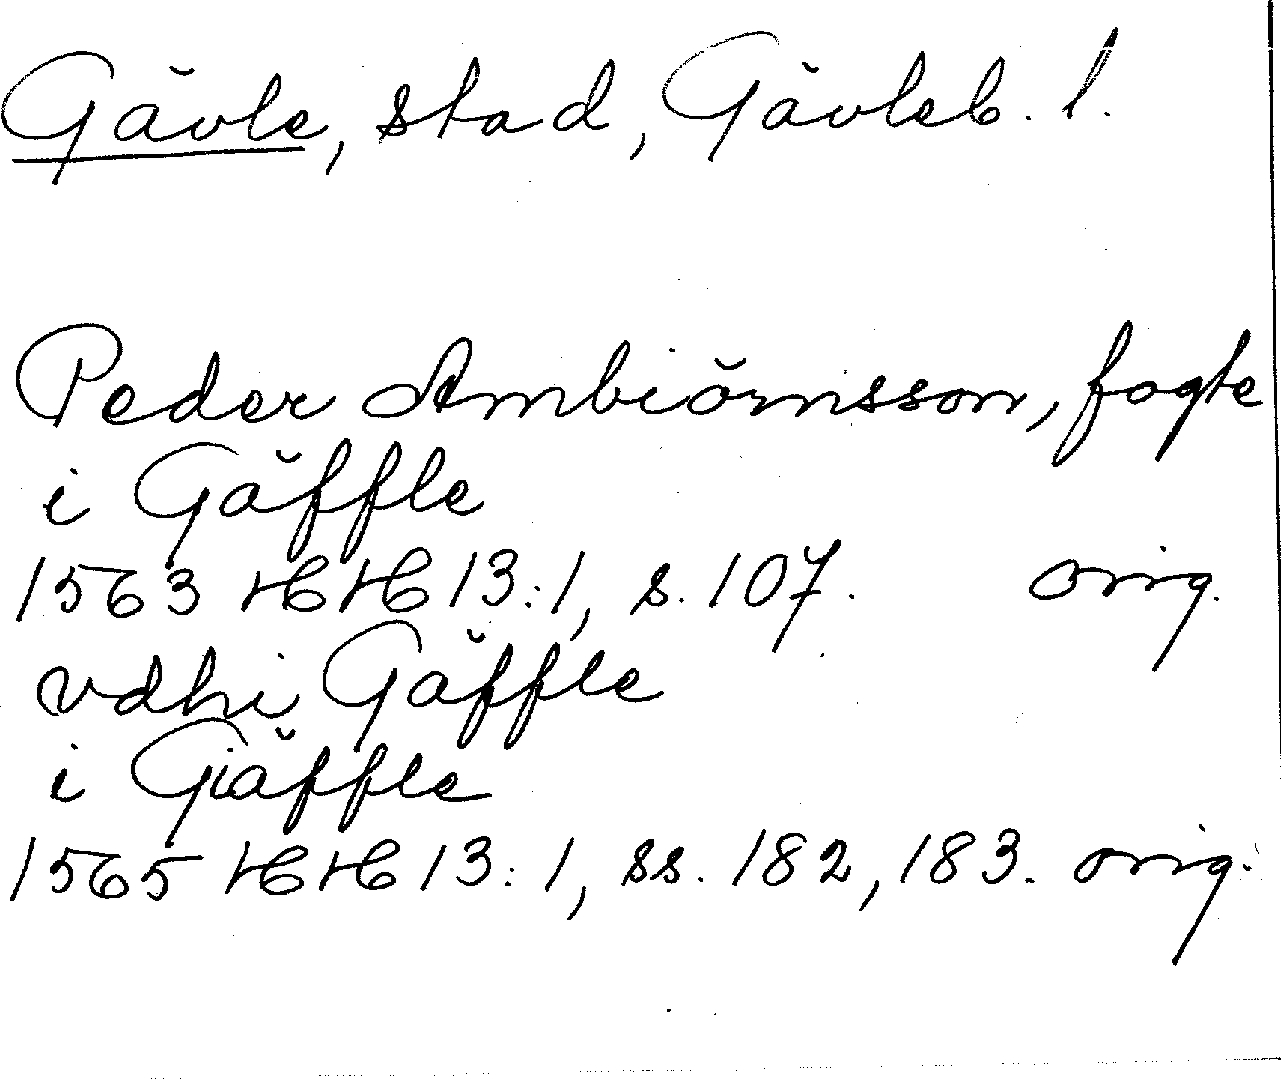 Gävle, stad, Gävleb. l.
Peder Ambiörnsson, fogte
i Gäffle
1563 HH 13:1, s. 107. orig.
vdhi Gäffle
i Giäffle
1565 HH 13:1, ss. 182, 183. orig.